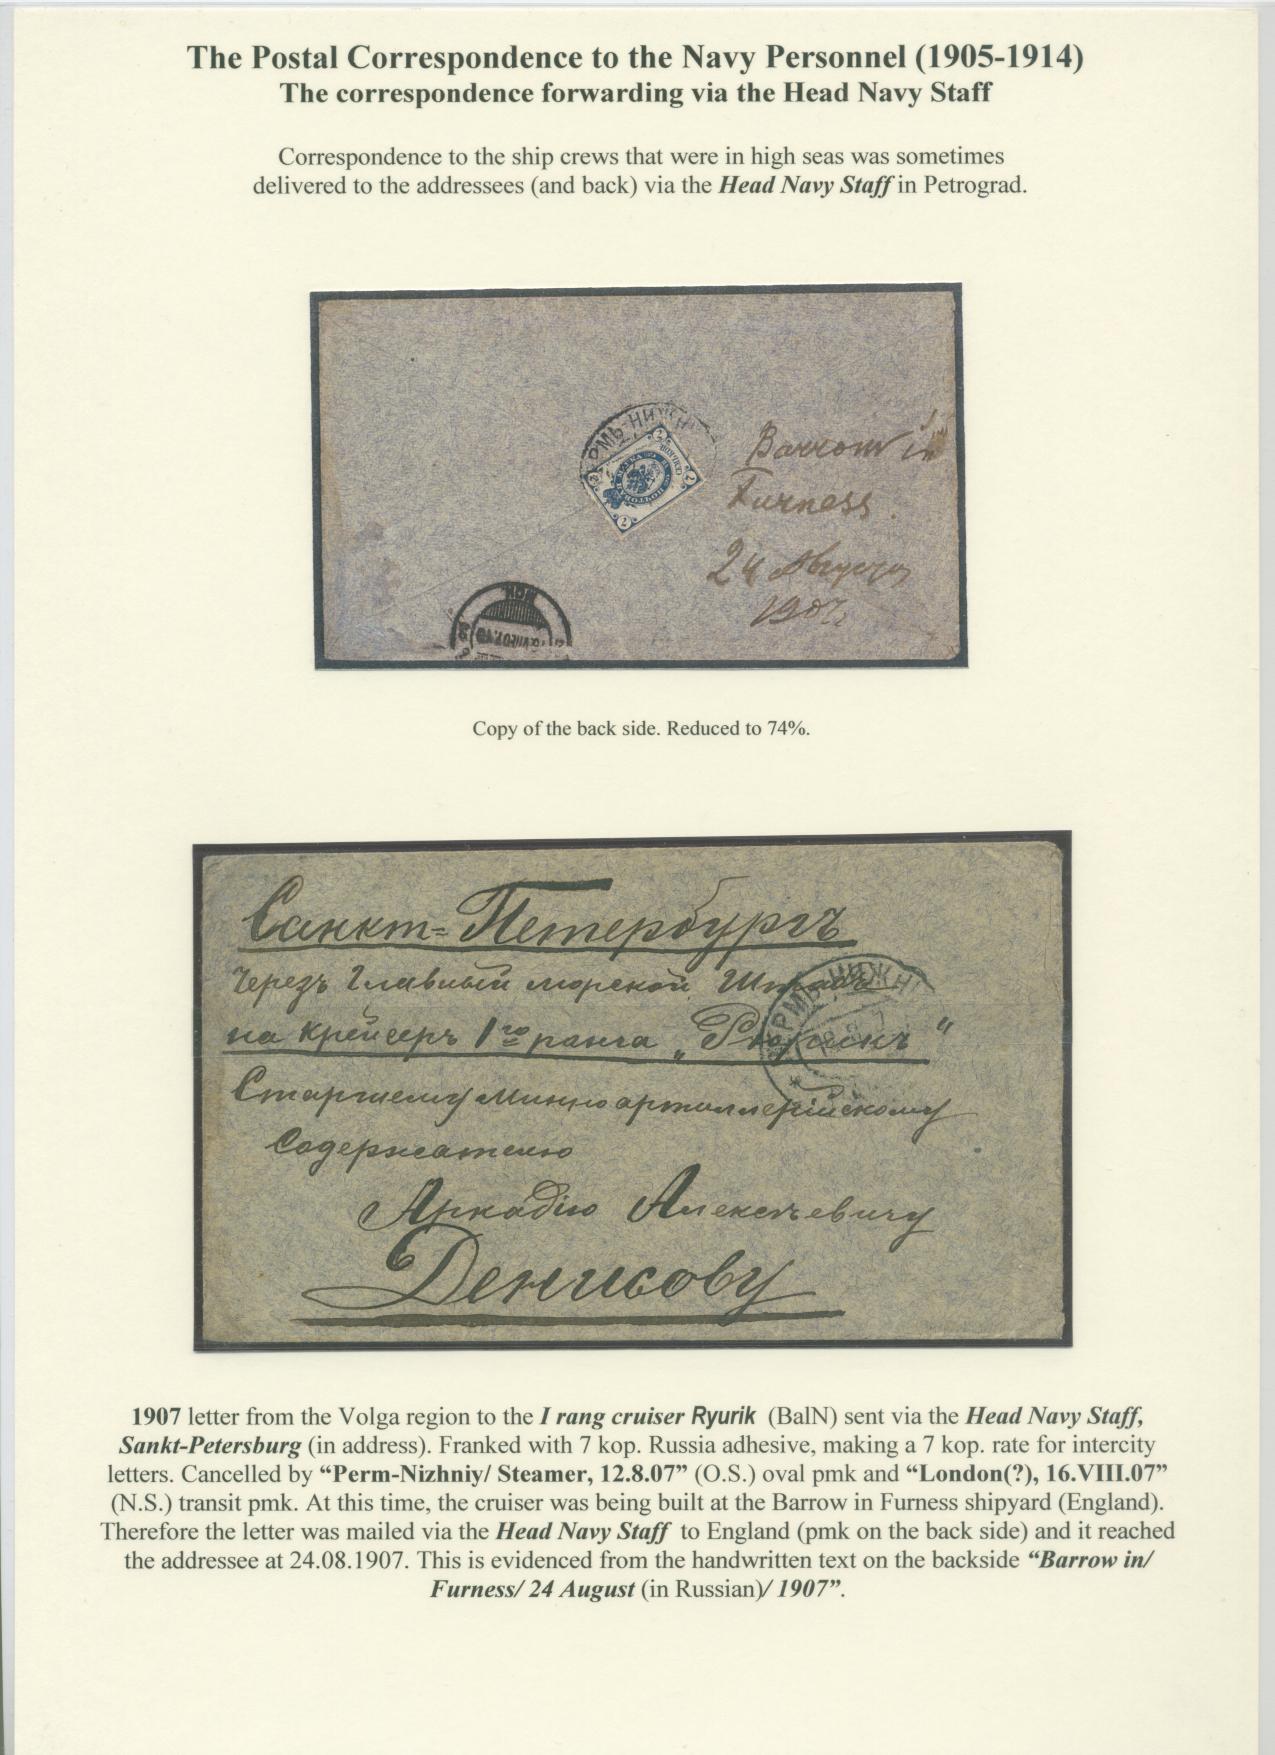 The Postal Correspondence to the Navy Personnel (1905-1914)
The correspondence forwarding via the Head Navy Staff
Correspondence to the ship crews that were in high seas was sometimes
delivered to the addressees (and back) via the Head Navy Staff in Petrograd.
РМЬ-НИЖН
Barrow in
Furness.
24 Августа
1907
Copy of the back side. Reduced to 74%.
Санкт=Петербургъ
Черезъ Главный морской Штабъ
на крейсеръ 1го ранга „Рюрикъ“
Старшему Минноартиллерійскому
Содержателю
Аркадію Алексѣевичу
Денисову
РМЬ-НИЖН
12.8.7
1907 letter from the Volga region to the I rang cruiser Ryurik (BalN) sent via the Head Navy Staff,
Sankt-Petersburg (in address). Franked with 7 kop. Russia adhesive, making a 7 kop. rate for intercity
letters. Cancelled by “Perm-Nizhniy/ Steamer, 12.8.07” (O.S.) oval pmk and “London(?), 16.VIII.07”
(N.S.) transit pmk. At this time, the cruiser was being built at the Barrow in Furness shipyard (England).
Therefore the letter was mailed via the Head Navy Staff to England (pmk on the back side) and it reached
the addressee at 24.08.1907. This is evidenced from the handwritten text on the backside “Barrow in/
Furness/ 24 August (in Russian)/ 1907”.